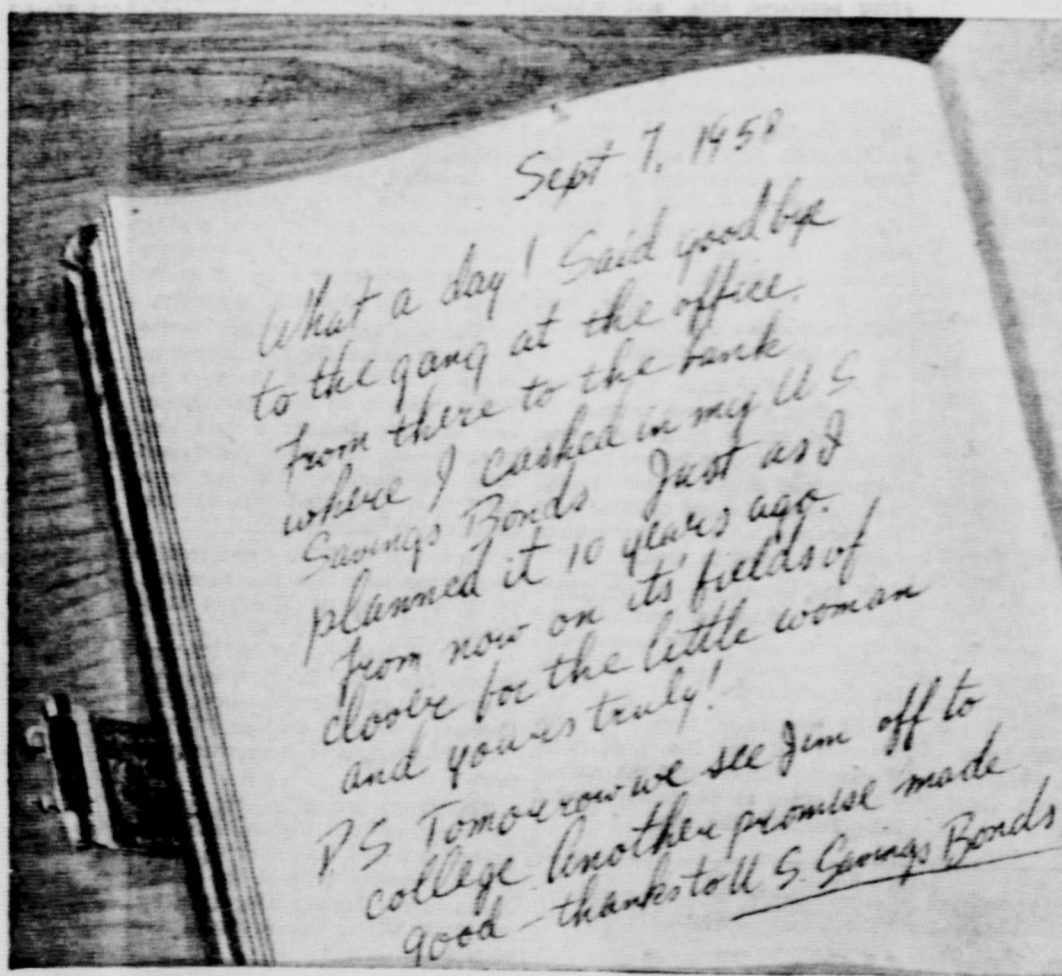 Sept 7, 1958
What a day! Said goodbye
to the gang at the office.
From there to the bank
where I cashed in my U S
Savings Bonds Just as I
planned it 10 years ago.
From now on its fields of
clover for the little woman
and yours truly!
P.S. Tomorrow we see Jim off to
college. Another promise made
good - thanks to U.S. Savings Bonds